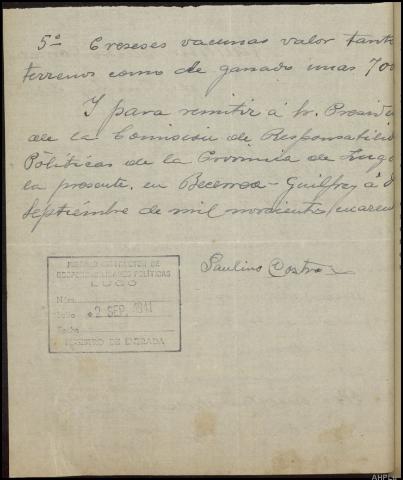 5º Creseses vacunas valor tanto
terrenos como de ganado unas 700
Y para remitir á Sr. Preside
de la Comision de Responsabilid
Politicas de la Provincia de Lugo
la presente, en Becerrea-Guilfrey á 
Septiembre de mil novecientos cuaren
Paulino Castro
JUZGADO INSTRUCTOR DE
RESPONSABILIDADES POLÍTICAS
LUGO
Núm.
2 SEP. 1941
Fecha
REGISTRO DE ENTRADA
AHPLU